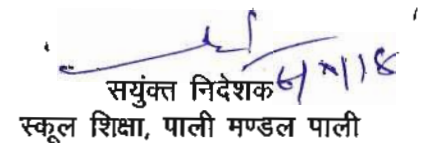 सयुंक्त निदेशक
स्कूल शिक्षा, पाली मण्डल पाली